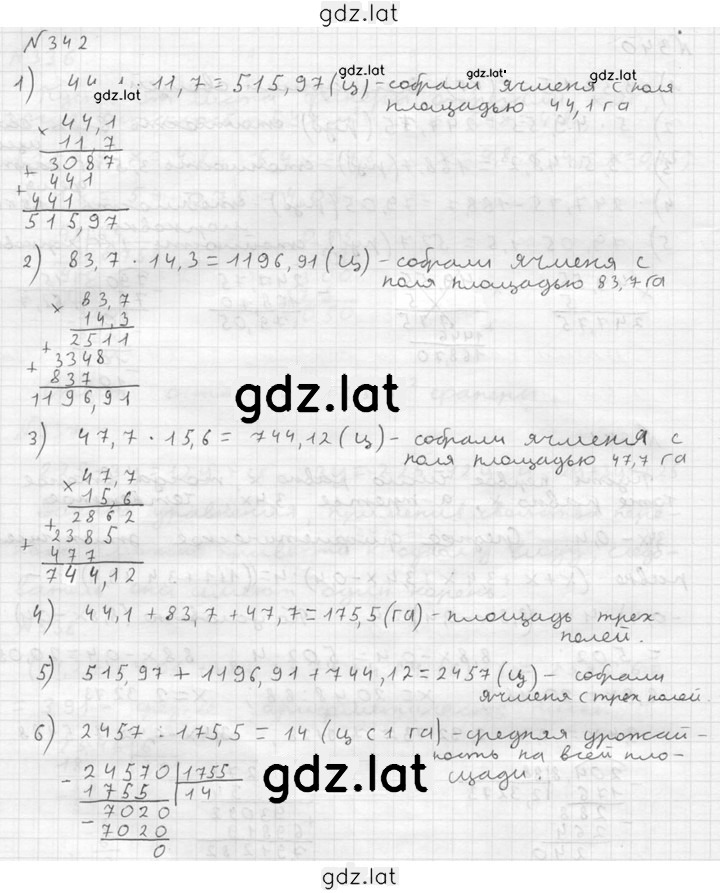 gdz.lat
N 342
1) 44,1 · 11,7 = 515,97 (ц) - собрали ячменя с поля
площадью 44,1 га
gdz.lat
gdz.lat
gdz.lat
× 44,1
11,7
+ 3087
+ 441
441
515,97
2) 83,7 · 14,3 = 1196,91 (ц) - собрали ячменя с
поля площадью 83,7 га
× 83,7
14,3
+ 2511
+ 3348
837
1196,91
gdz.lat
3) 47,7 · 15,6 = 744,12 (ц) - собрали ячменя с
поля площадью 47,7 га
× 47,7
15,6
+ 2862
+ 2385
477
744,12
4) 44,1 + 83,7 + 47,7 = 175,5 (га) - площадь трех
полей.
5) 515,97 + 1196,91 + 744,12 = 2457 (ц) - собрали
ячменя с трех полей.
6) 2457 : 175,5 = 14 (ц с 1 га) - средняя урожай-
ность на всей пло-
щади.
- 24570 | 1755
1755 | 14
- 7020
7020
0
gdz.lat
gdz.lat